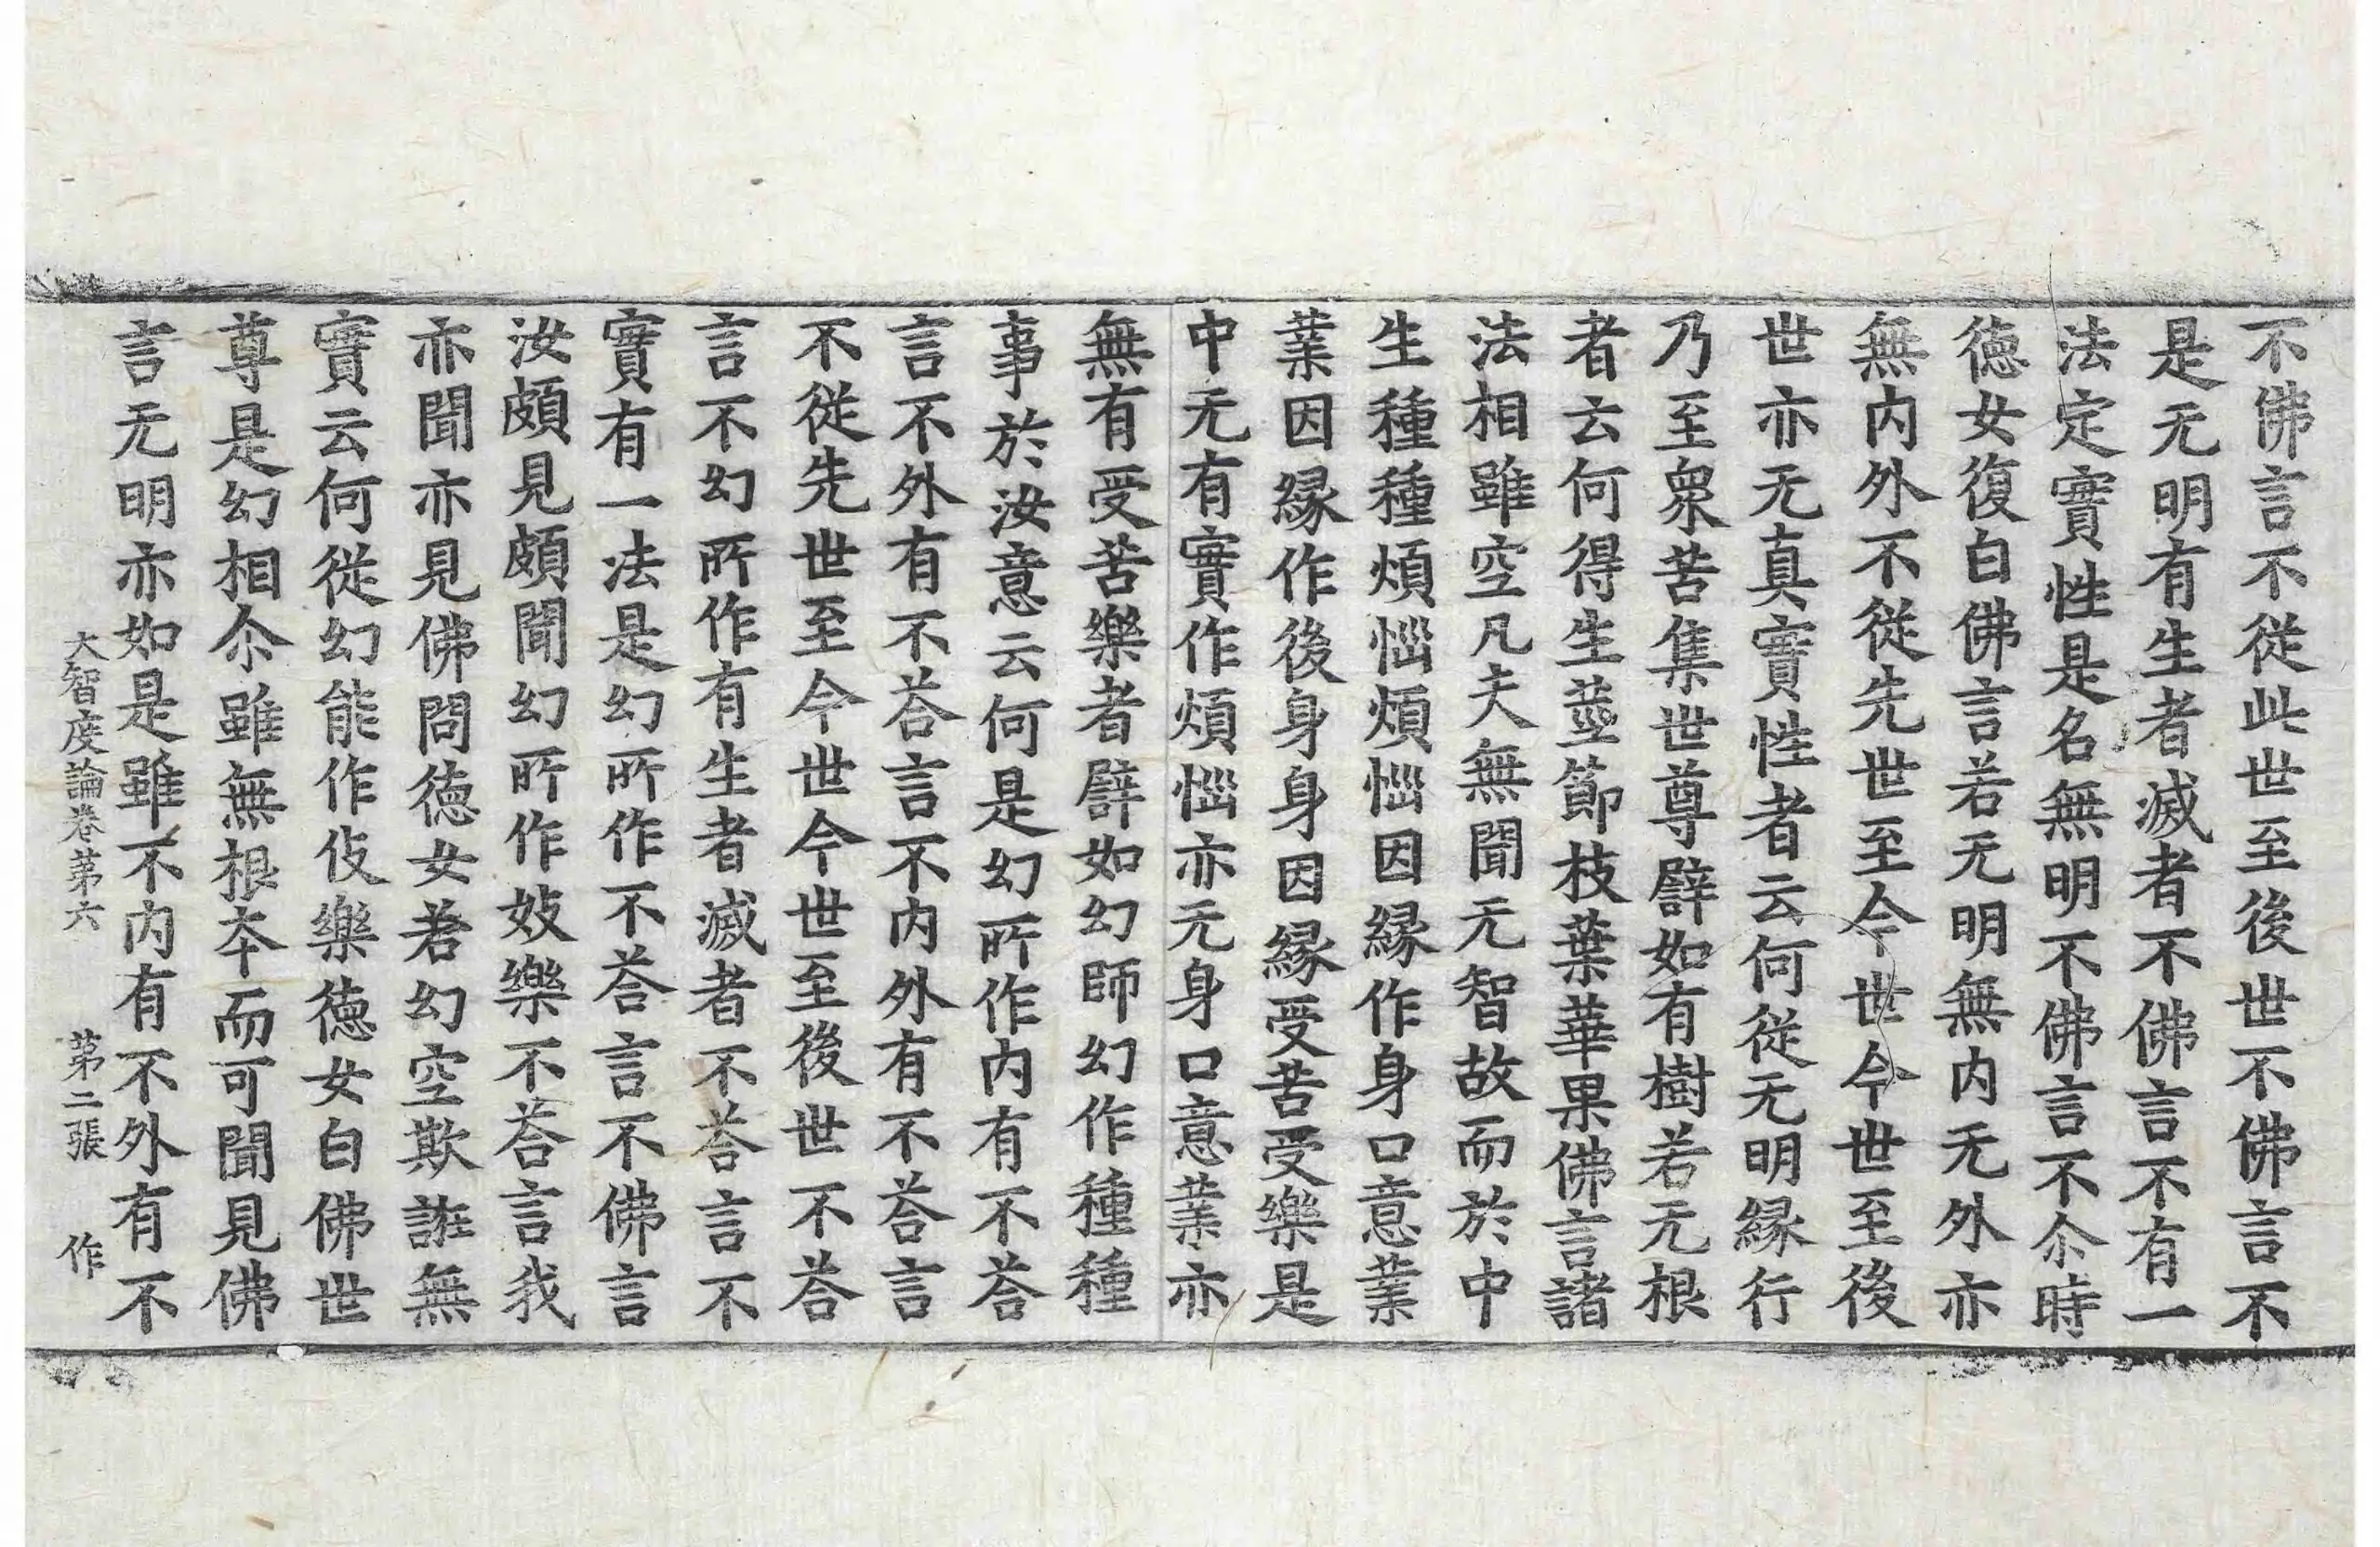 不佛言不從此世至後世不佛言不
是无明有生者滅者不佛言不有一
法定實性是名無明不佛言不尒時
德女復白佛言若无明無内无外亦
無内外不從先世至今世今世至後
世亦无真實性者云何從无明縁行
乃至衆苦集世尊譬如有樹若无根
者云何得生莖節枝葉華果佛言諸
法相雖空凡夫無聞无智故而於中
生種種煩惱煩惱因縁作身口意業
業因縁作後身身因縁受苦受樂是
中无有實作煩惱亦无身口意業亦
無有受苦樂者譬如幻師幻作種種
事於汝意云何是幻所作内有不荅
言不外有不荅言不内外有不荅言
不從先世至今世今世至後世不荅
言不幻所作有生者滅者不荅言不
實有一法是幻所作不荅言不佛言
汝頗見頗聞幻所作妓樂不荅言我
亦聞亦見佛問德女若幻空欺誑無
實云何從幻能作伎樂德女白佛世
尊是幻相尒雖無根夲而可聞見佛
言无明亦如是雖不内有不外有不
大智度論卷第六 第二張 作